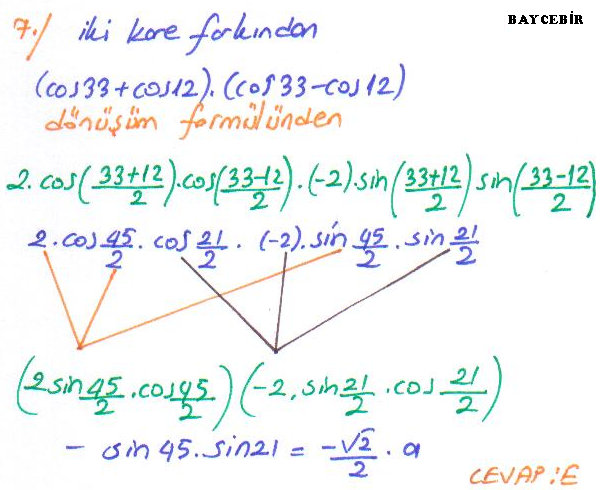 BAYCEBİR
7./ iki kare farkından
(cos33+cos12).(cos33-cos12)
dönüşüm formülünden
2.cos(33+12/2).cos(33-12/2).(-2).sin(33+12/2)sin(33-12/2)
2.cos 45/2 . cos 21/2 . (-2).sin 45/2 . sin 21/2
(2sin 45/2 . cos 45/2)(-2.sin 21/2 . cos 21/2)
- sin45.sin21 = -√2/2 . a
CEVAP:E